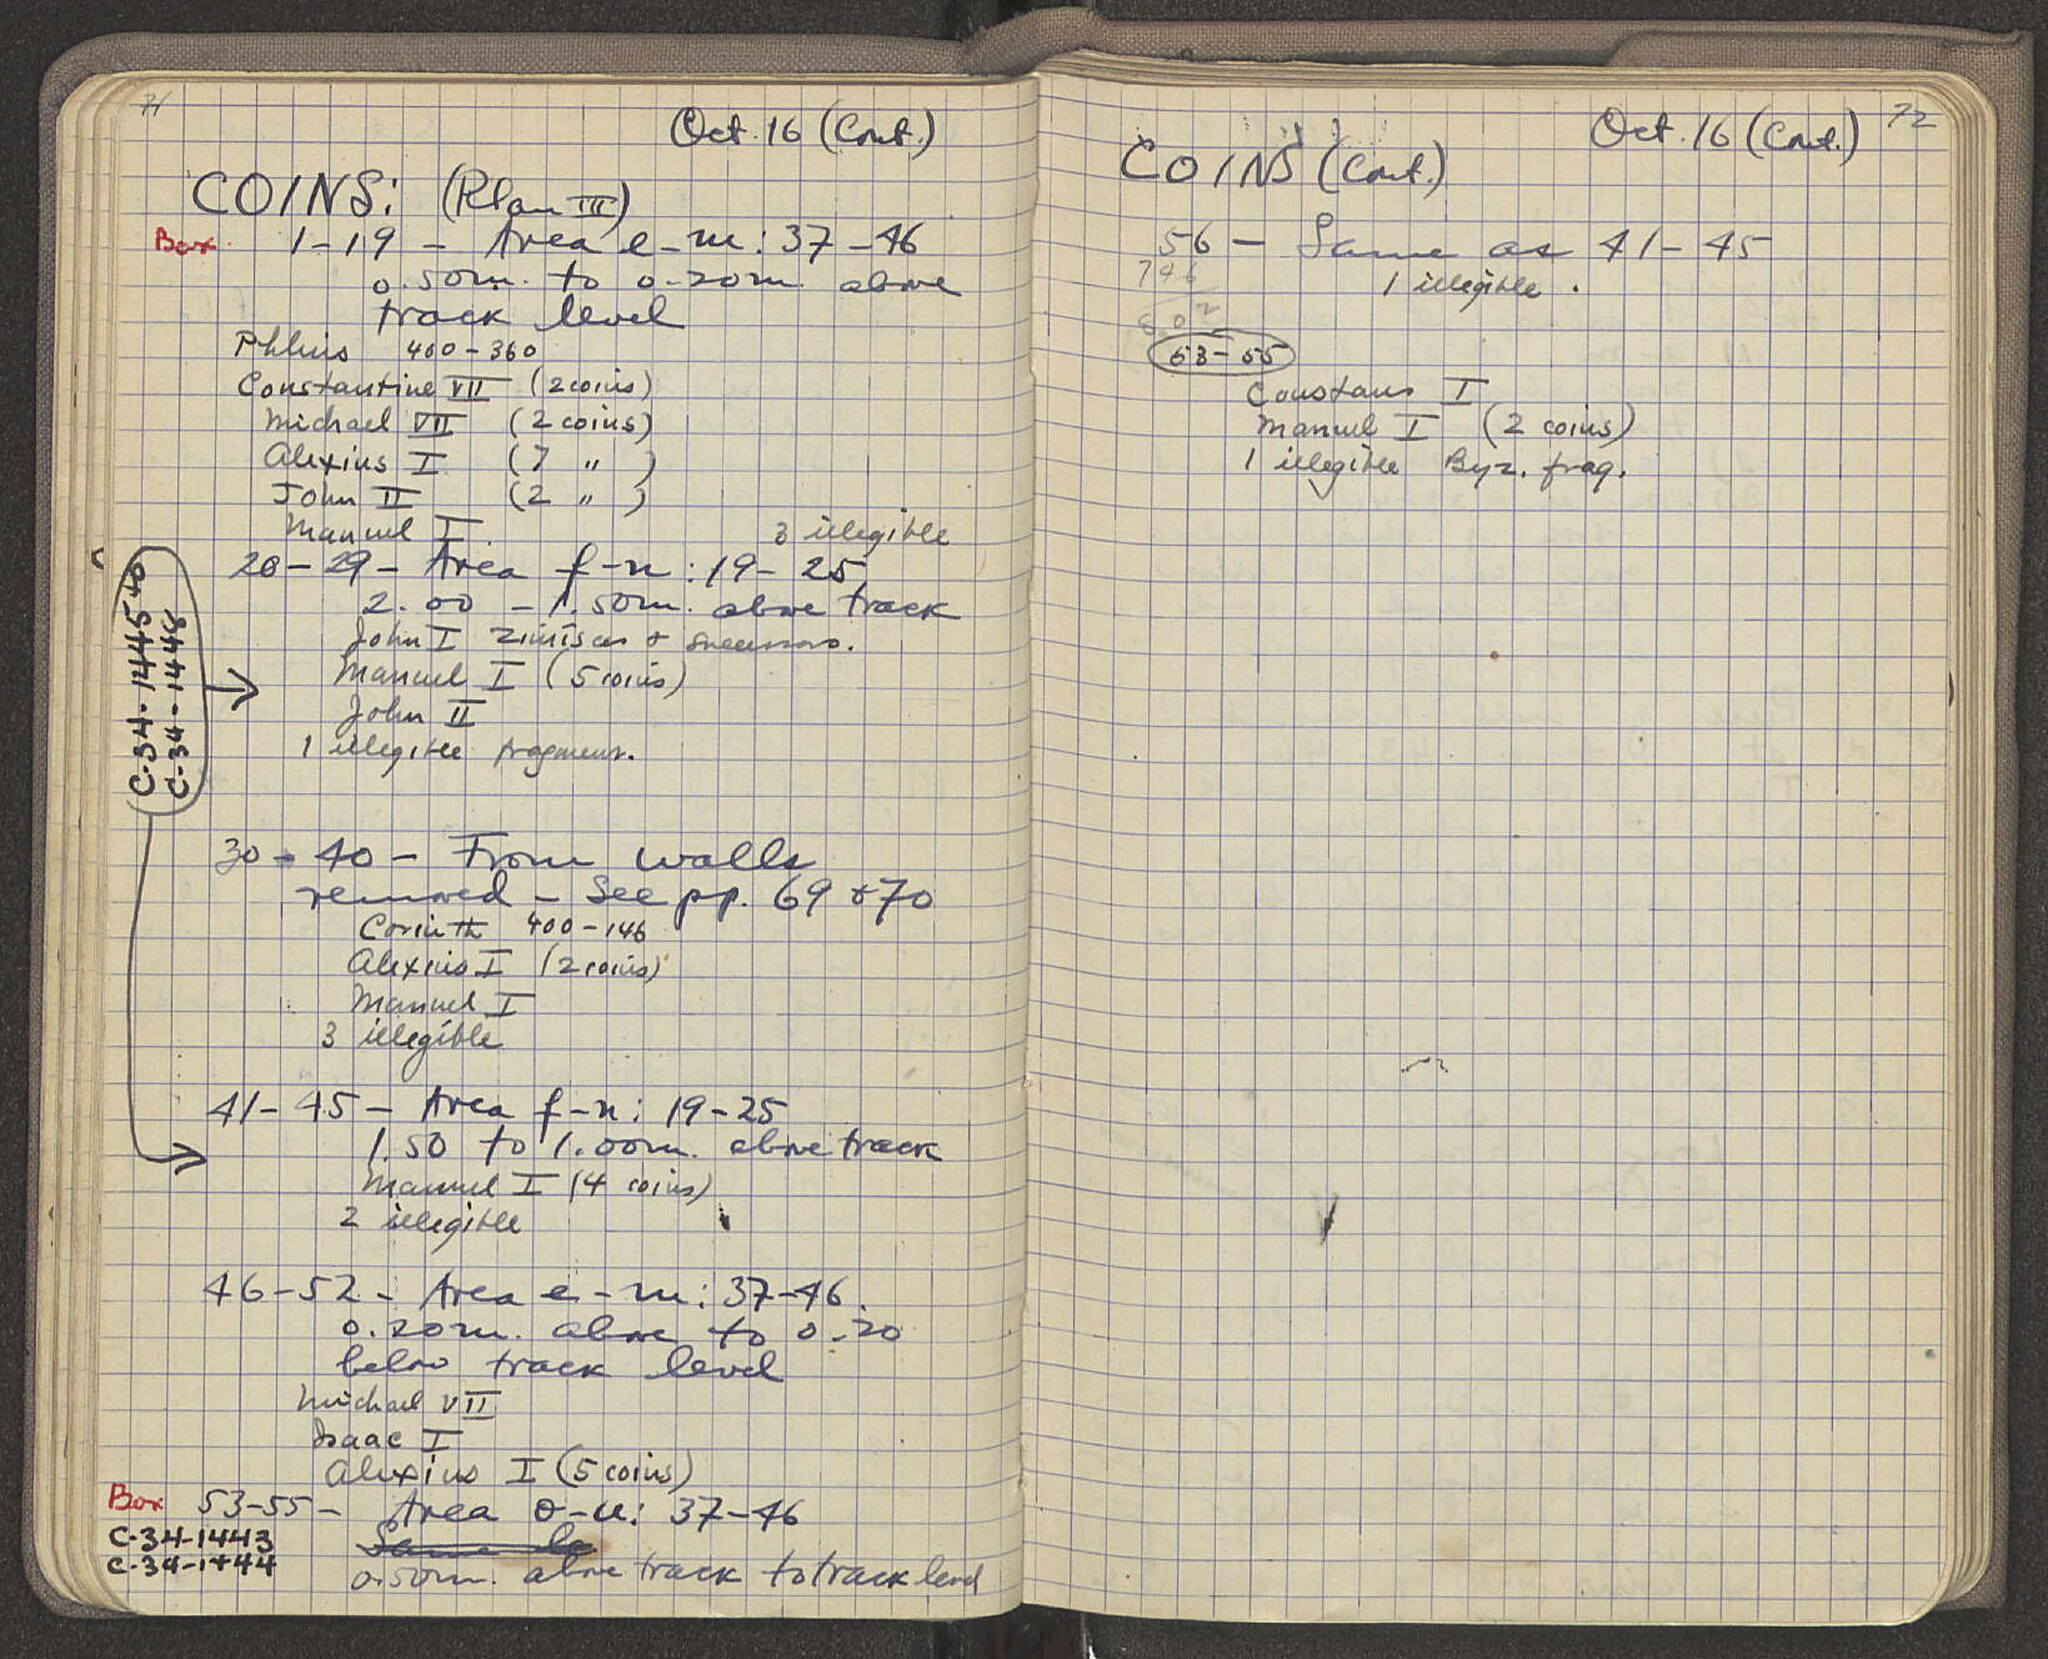 71
Oct. 16 (Cont.)
COINS: (Plan III)
Box 1-19 - Area e-m: 37-46
0.50m. to 0.20m. above
track level
Phlius 400-360
Constantine VII (2 coins)
Michael VII (2 coins)
Alexius I (7 " )
John II (2 " )
Manuel I 3 illegible
20-29- Area f-n: 19-25
2.00 - 1.50m. above track
John I Zimisces & successors.
Manuel I (5 coins)
John II
1 illegible fragment.
C-34-1448
30-40- From walls
removed - See pp. 69 & 70
Corinth 400-146
Alexius I (2 coins)
Manuel I
3 illegible
41-45- Area f-n: 19-25
1.50 to 1.00m. above track
Manuel I (4 coins)
2 illegible
46-52- Area e-m: 37-46.
0.20m. above to 0.20
below track level
Michael VII
Isaac I
Alexius I (5 coins)
Box 53-55- Area o-u: 37-46
C-34-1443
C-34-1444
0.50m. above track to track level
72
Oct. 16 (Cont.)
COINS (Cont.)
56 - Same as 41-45
1 illegible.
746
53-55
Constans I
Manuel I (2 coins)
1 illegible Byz. frag.